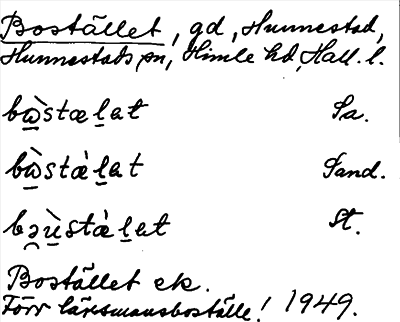 Bostället, gd, Hunnestad,
Hunnestads sn, Himle hd, Hall. l.
bὼ̲stæl̲at Sa.
bὼ̲stæ̀l̲at Sand.
bə̯ù̲stæ̀l̲at St.
Bostället ek.
Förr länsmansboställe! 1949.